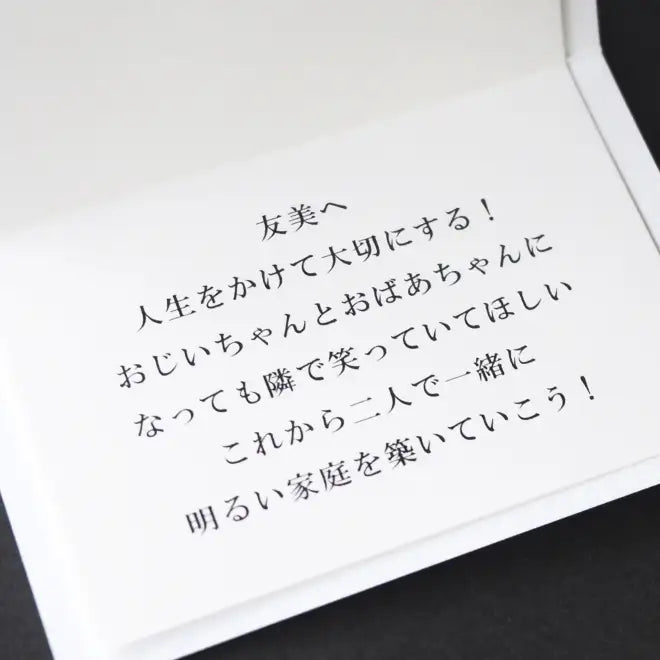 友美へ
人生をかけて大切にする！
おじいちゃんとおばあちゃんに
なっても隣で笑っていてほしい
これから二人で一緒に
明るい家庭を築いていこう！